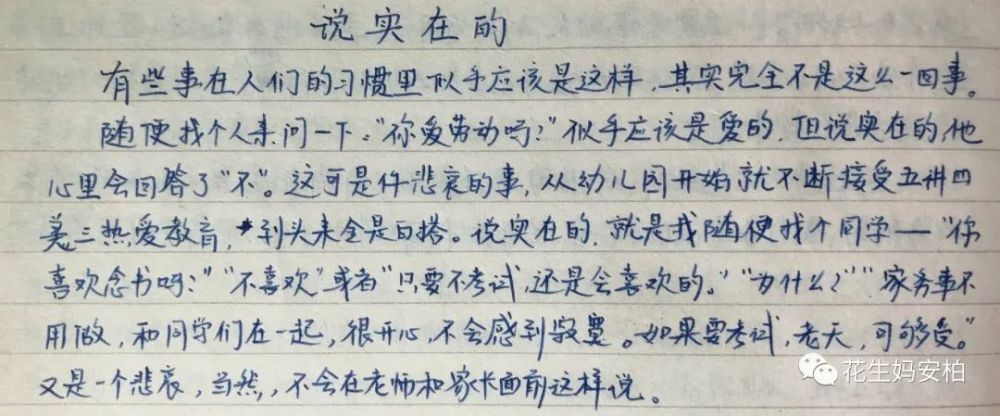 说实在的
有些事在人们的习惯里似乎应该是这样，其实完全不是这么一回事。
随便找个人来问一下，"你爱劳动吗？"似乎应该是爱的，但说实在的，他
心里会回答了"不"。这可是件悲哀的事，从幼儿园开始就不断接受五讲四
美三热爱教育，到头来全是白搭。说实在的，就是我随便找个同学——"你
喜欢念书吗？""不喜欢"或者"只要不考试，还是会喜欢的。""为什么？""家务事不
用做，和同学们在一起，很开心，不会感到寂寞。如果要考试，老天，可够受。"
又是一个悲哀，当然，不会在老师和家长面前这样说。
花生妈安柏